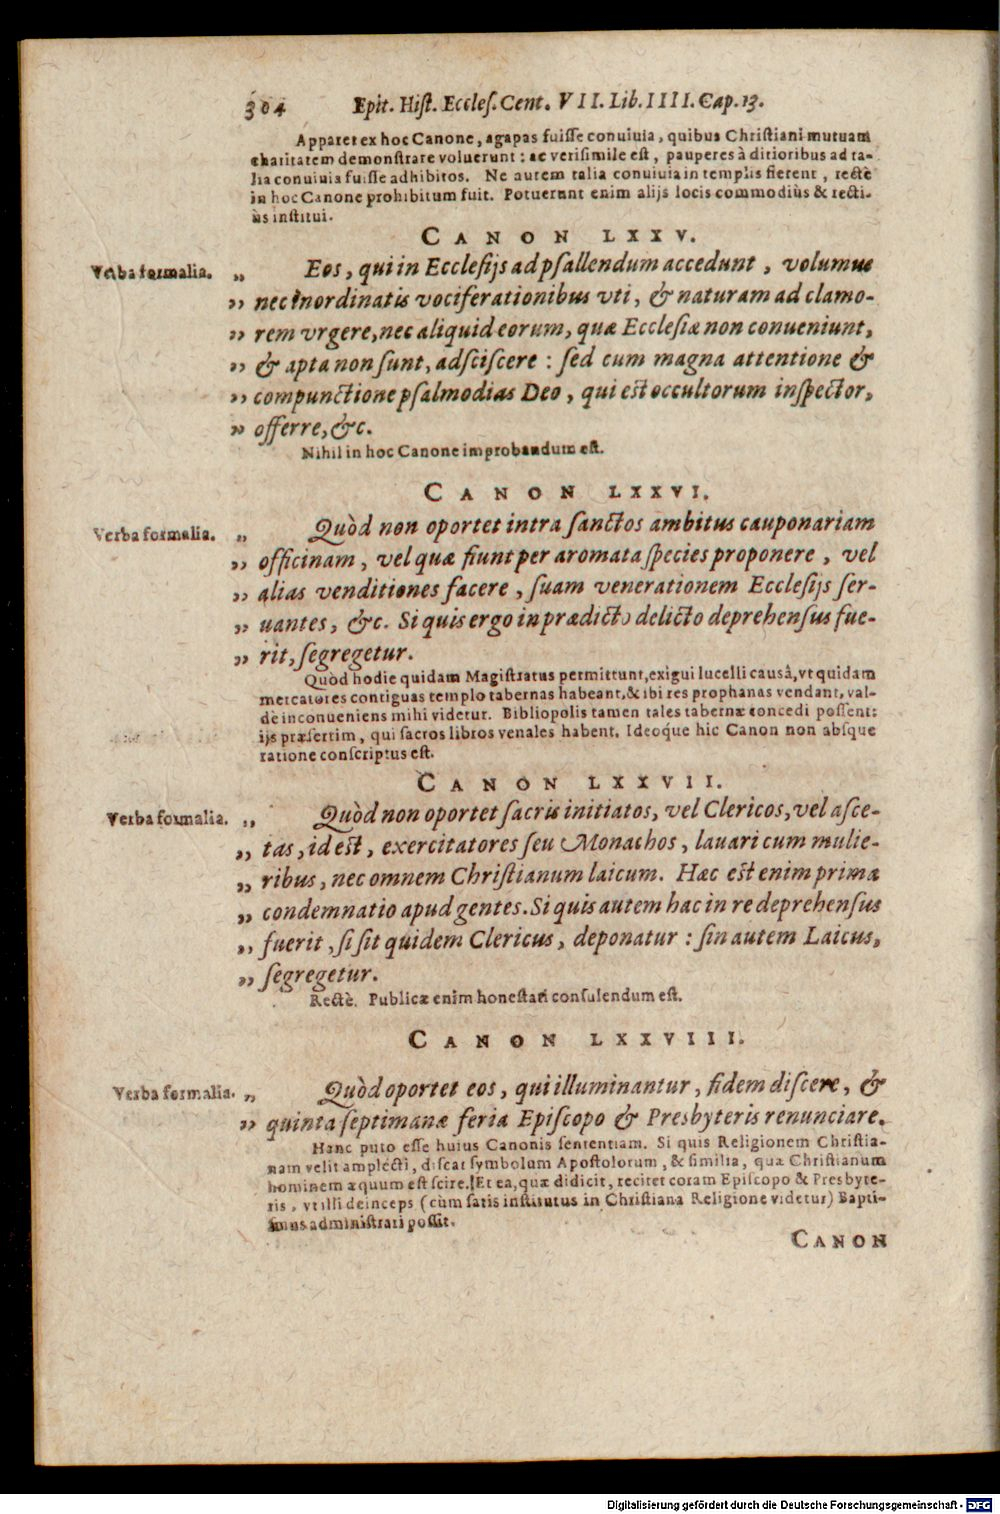 304 Epit. Hist. Eccles. Cent. VII. Lib. IIII. Cap. 13.
Apparet ex hoc Canone, agapas fuisse conuiuia, quibus Christiani mutuam
charitatem demonstrare voluerunt: ac verisimile est, pauperes à ditioribus ad ta-
lia conuiuia fuisse adhibitos. Ne autem talia conuiuia in templis fierent, rectè
in hoc Canone prohibitum fuit. Potuerunt enim alijs locis commodiùs & recti-
ùs institui.
CANON LXXV.
Verba formalia. „ Eos, qui in Ecclesijs ad psallendum accedunt, volumus
„ nec inordinatis vociferationibus vti, & naturam ad clamo-
„ rem vrgere, nec aliquid eorum, quæ Ecclesiæ non conueniunt,
„ & apta non sunt, adsciscere: sed cum magna attentione &
„ compunctione psalmodias Deo, qui est occultorum inspector,
„ offerre, &c.
Nihil in hoc Canone improbandum est.
CANON LXXVI.
Verba formalia. „ Quòd non oportet intra sanctos ambitus cauponariam
„ officinam, vel quæ fiunt per aromata species proponere, vel
„ alias venditiones facere, suam venerationem Ecclesijs ser-
„ uantes, &c. Si quis ergo in prædicto delicto deprehensus fue-
„ rit, segregetur.
Quòd hodie quidam Magistratus permittunt, exigui lucelli causâ, vt quidam
mercatores contiguas templo tabernas habeant, & ibi res prophanas vendant, val-
dè inconueniens mihi videtur. Bibliopolis tamen tales tabernæ concedi possent:
ijs præsertim, qui sacros libros venales habent. Ideoque hic Canon non absque
ratione conscriptus est.
CANON LXXVII.
Verba formalia. „ Quòd non oportet sacris initiatos, vel Clericos, vel asce-
„ tas, id est, exercitatores seu Monachos, lauari cum mulie-
„ ribus, nec omnem Christianum laicum. Hæc est enim prima
„ condemnatio apud gentes. Si quis autem hac in re deprehensus
„ fuerit, si sit quidem Clericus, deponatur: sin autem Laicus,
„ segregetur.
Rectè. Publicæ enim honestati consulendum est.
CANON LXXVIII.
Verba formalia. „ Quòd oportet eos, qui illuminantur, fidem discere, &
„ quinta septimanæ feria Episcopo & Presbyteris renunciare.
Hanc puto esse huius Canonis sententiam. Si quis Religionem Christia-
nam velit amplecti, discat symbolum Apostolorum, & similia, quæ Christianum
hominem æquum est scire. Et ea, quæ didicit, recitet coram Episcopo & Presbyte-
ris, vt illi deinceps (cùm satis institutus in Christiana Religione videtur) Bapti-
smus administrari possit.
CANON
Digitalisierung gefördert durch die Deutsche Forschungsgemeinschaft - DFG